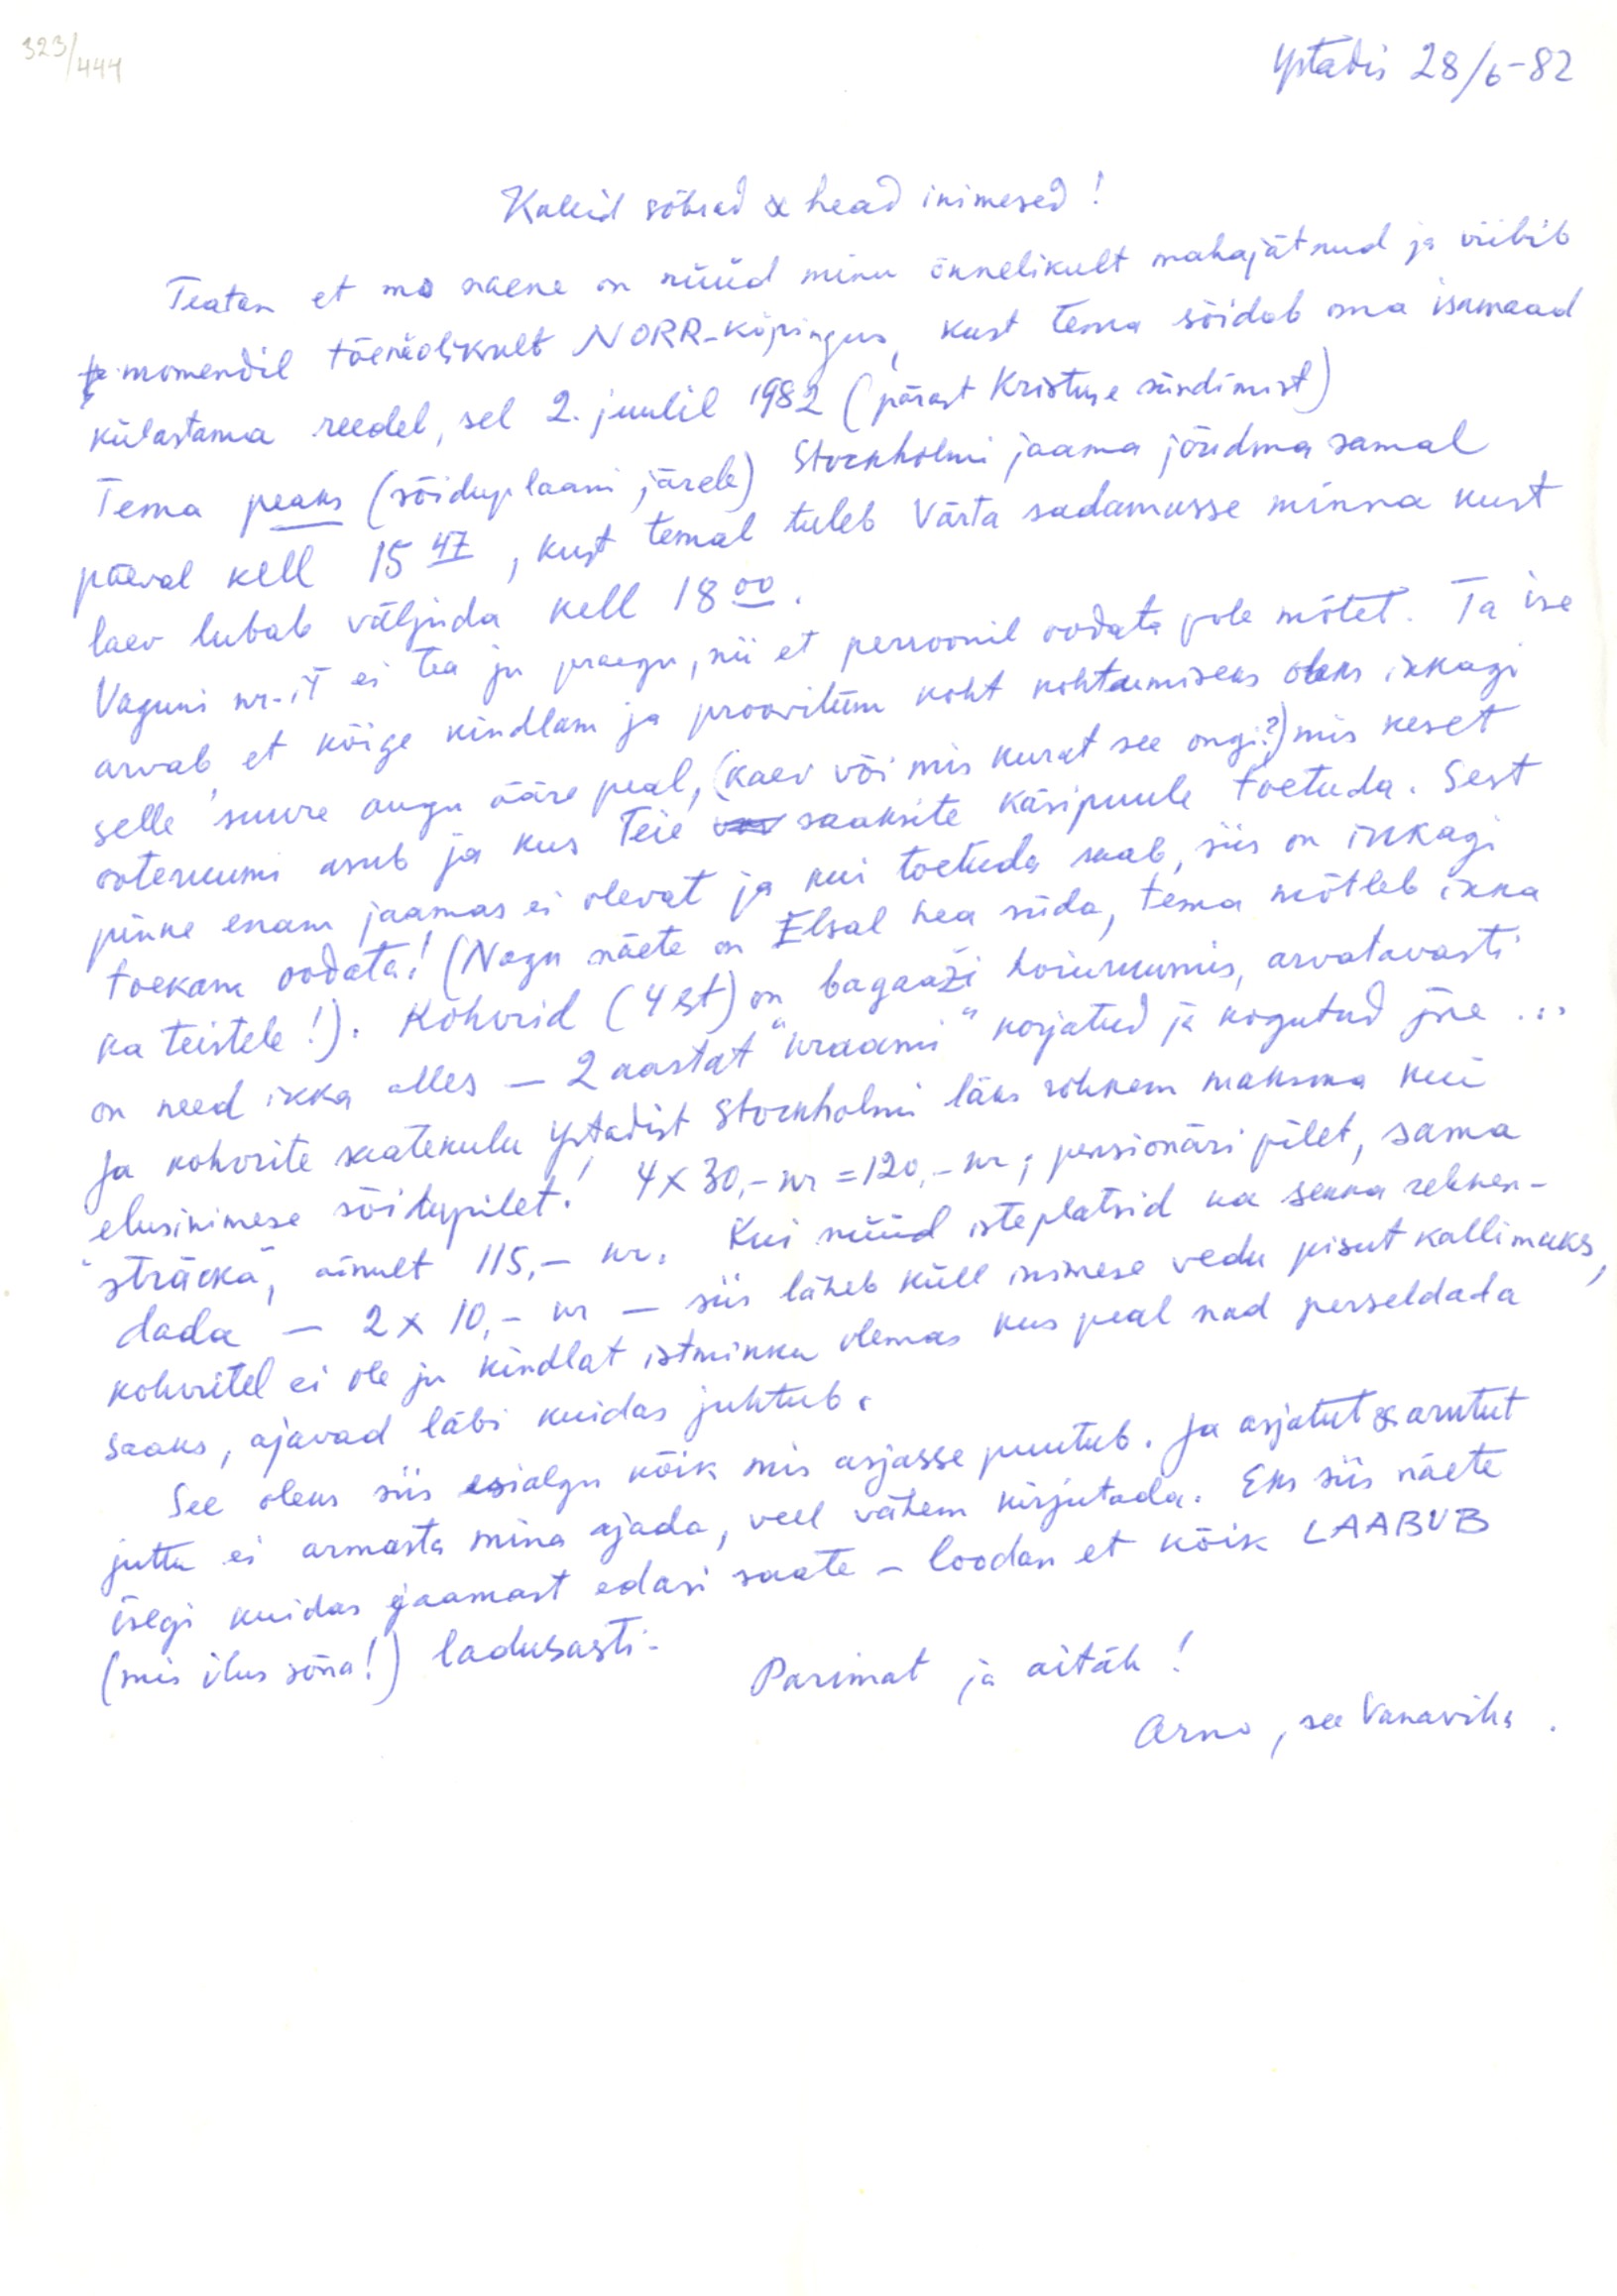 323/444
Ystadis 28/6-82
Kallid sõbrad & head inimesed!
Teatan et mo naene on nüüd minu õnnelikult mahajätnud ja viibib
momendil tõenäolikult NORR-köpingus, kust tema sõidab oma isamaad
külastama reedel, sel 2. juulil 1982 (pärast Kristuse sündimist)
Tema peaks (sõiduplaani järele) Stockholmi jaama jõudma samal
päeval kell 15 47, kust temal tuleb Värta sadamasse minna kust
laev lubab väljuda kell 18 00.
Vaguni nr-it ei tea ju praegu, nii et perroonil oodata pole mõtet. Ta ise
arvab, et kõige kindlam ja proovitum koht kohtumiseks oleks ikkagi
selle suure augu ääre peal, (kaev või mis kurat see ongi?) mis keset
ooteruumi asub ja kus Teie saaksite käsipuule toetuda. Sest
pinke enam jaamas ei olevat ja kui toetuda saab, siis on ikkagi
toekam oodata! (Nagu näete on Elsal hea süda, tema mõtleb ikka
ka teistele!). Kohvrid (4 st) on bagaaži hoiuruumis, arvatavasti
on need ikka alles – 2 aastat "kraami" korjatud ja kogutud jne ...
Ja kohvrite saatekulu Ystadist Stockholmi läks rohkem maksma kui
elusinimese sõidupilet! 4 x 30,- kr = 120,- kr; pensionäri pilet, sama
"sträcka", ainult 115,- kr. Kui nüüd isteplatsid ka senna rehken-
dada – 2 x 10,- kr – siis läheb küll inimese vedu pisut kallimaks,
kohvritel ei ole ju kindlat istminku olemas kus peal nad perseldada
saaks, ajavad läbi kuidas juhtub.
See oleks siis esialgu kõik mis asjasse puutub. Ja asjatut & arutut
juttu ei armasta mina ajada, veel vähem kirjutada. Eks siis näete
isegi kuidas jaamast edasi saate – loodan et kõik LAABUB
(mis ilus sõna!) ladusasti.
Parimat ja aitäh!
Arno, see Vanaviha.